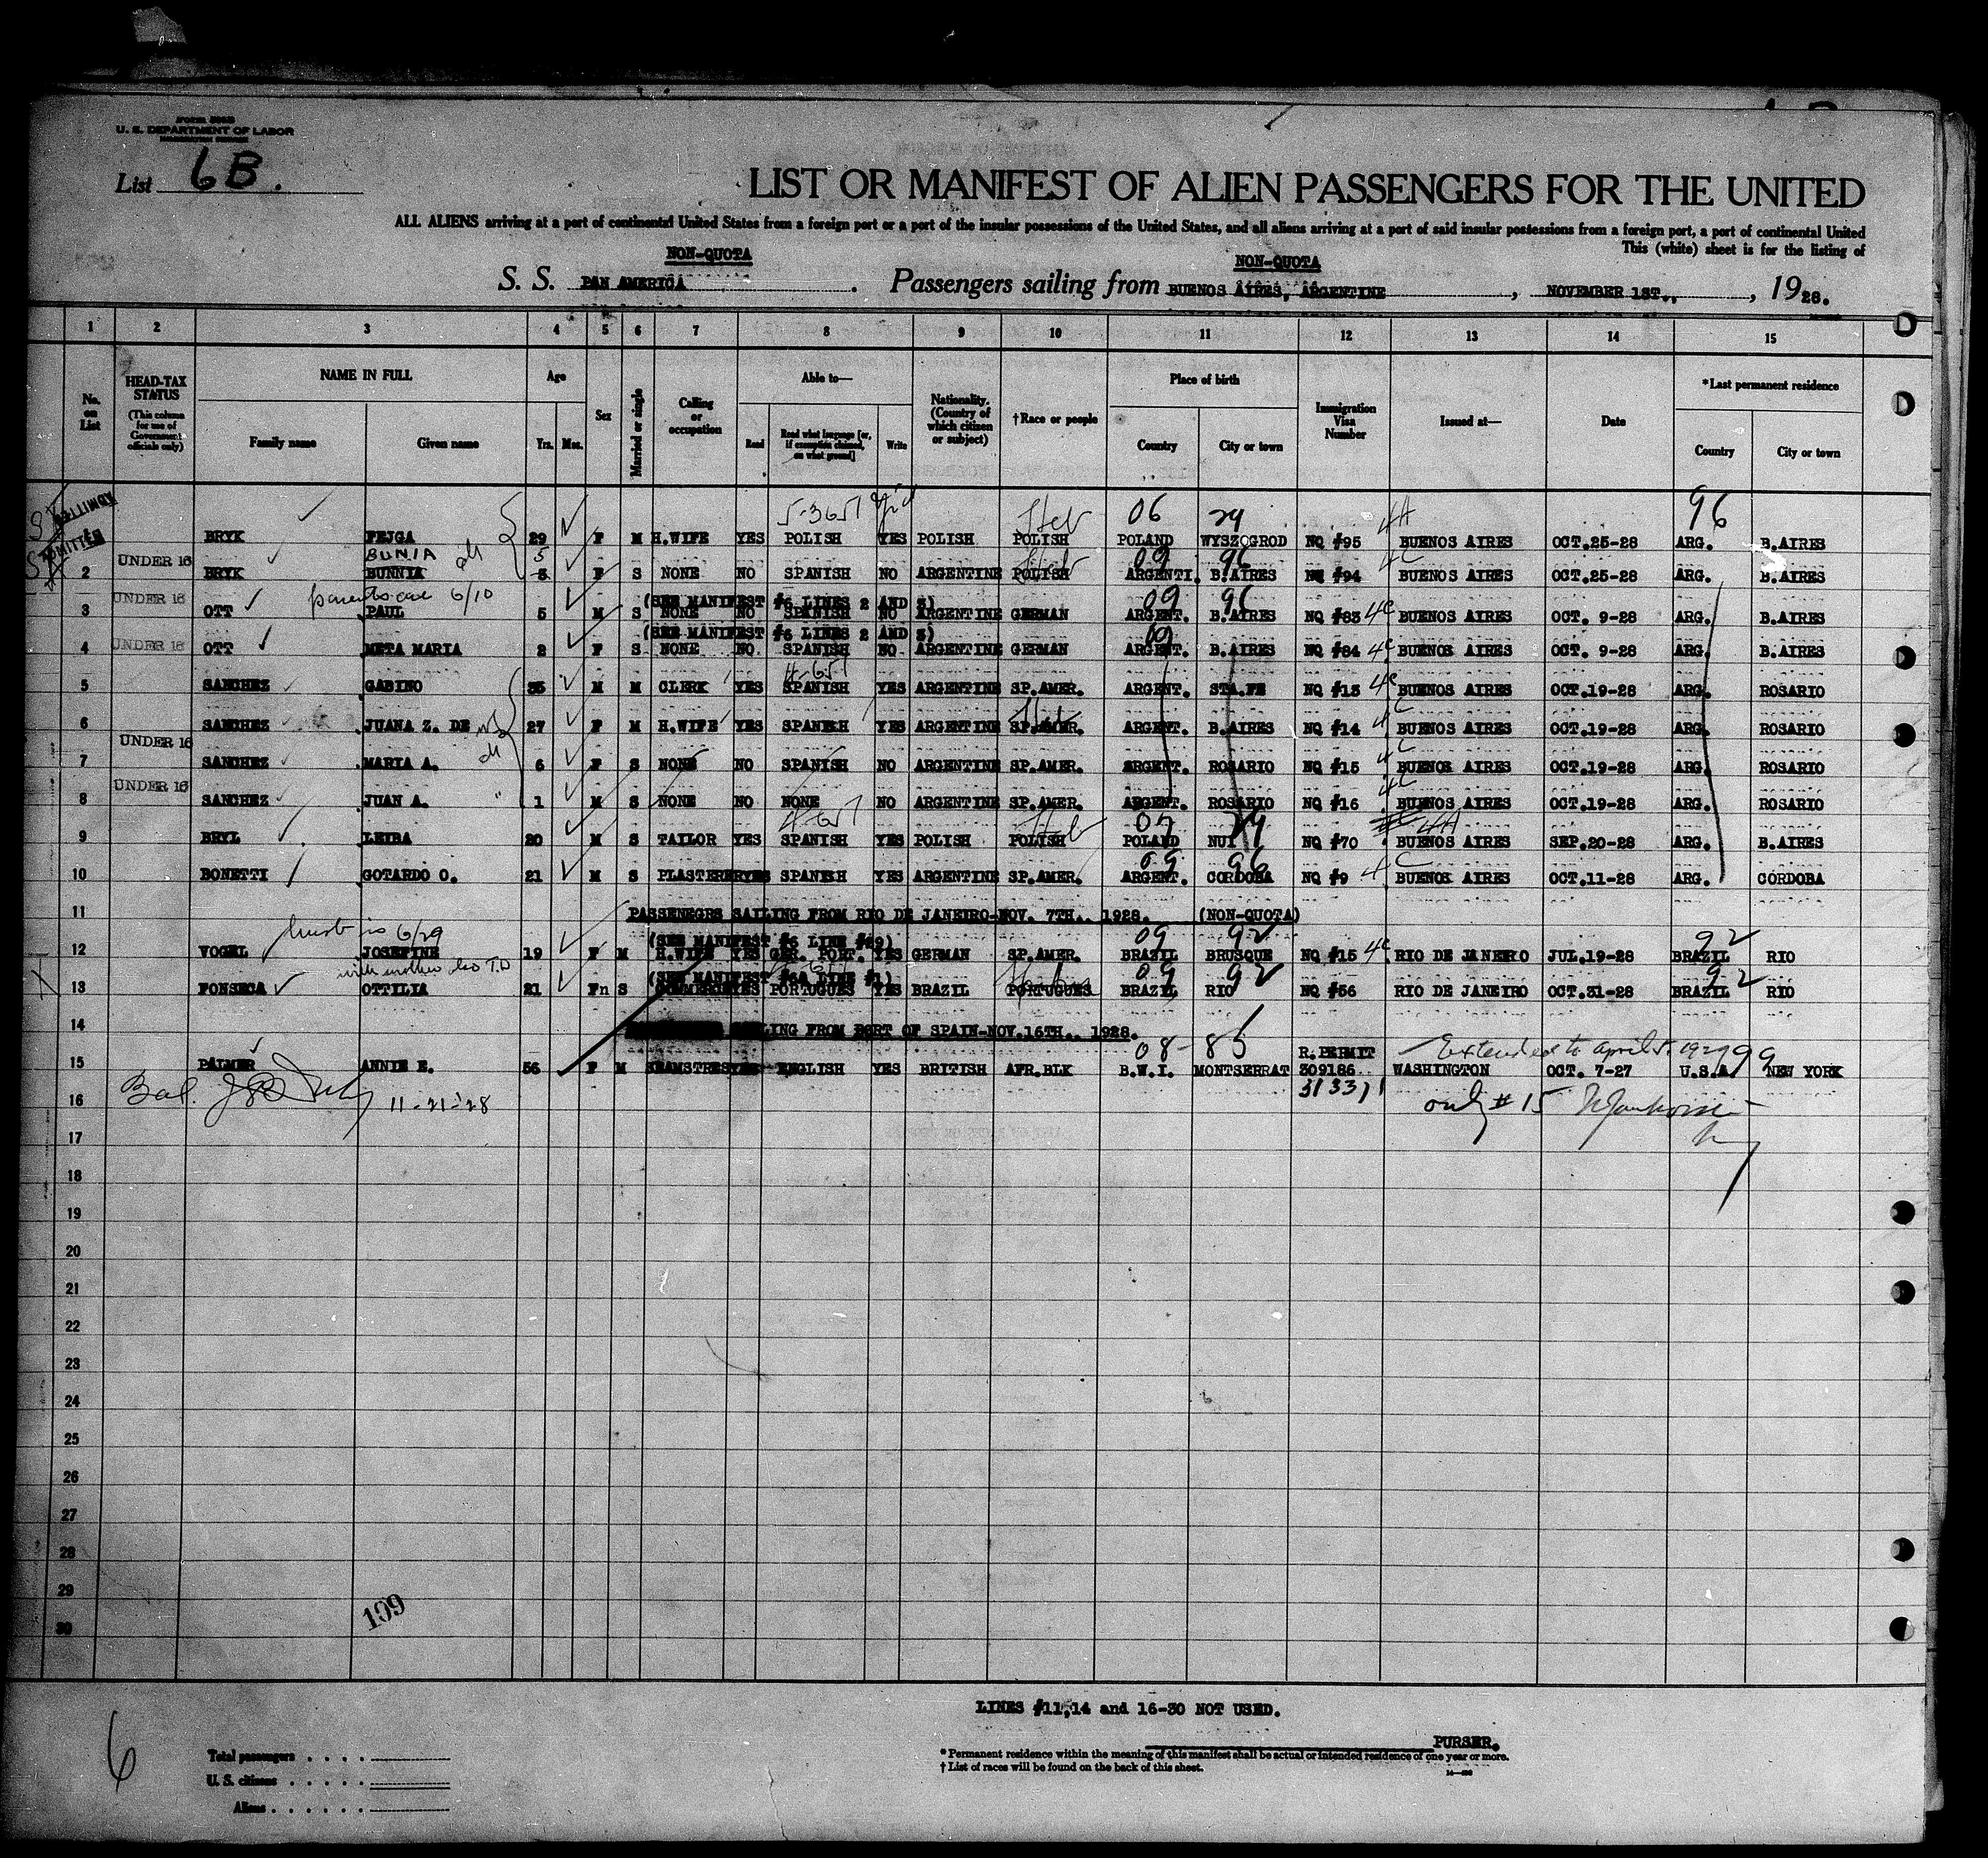 Form 500B
U. S. DEPARTMENT OF LABOR
List 6B.
LIST OR MANIFEST OF ALIEN PASSENGERS FOR THE UNITED
ALL ALIENS arriving at a port of continental United States from a foreign port or a port of the insular possessions of the United States, and all aliens arriving at a port of said insular possessions from a foreign port, a port of continental United
This (white) sheet is for the listing of
NON-QUOTA NON-QUOTA
S. S. PAN AMERICA . Passengers sailing from BUENOS AIRES, ARGENTINE , NOVEMBER 1ST., , 1928.
1 2 3 4 5 6 7 8 9 10 11 12 13 14 15
No. on List
HEAD-TAX STATUS (This column for use of Government officials only)
NAME IN FULL
Family name Given name
Age
Yrs. Mos.
Sex
Married or single
Calling or occupation
Able to—
Read Read what language [or, if exemption claimed, on what ground] Write
Nationality. (Country of which citizen or subject)
†Race or people
Place of birth
Country City or town
Immigration Visa Number
Issued at—
Date
*Last permanent residence
Country City or town
ADMITTED
ADMITTED
5-3651 Yid Heb 06 29 4A 96
BRYK FEJGA 29 F M H.WIFE YES POLISH YES POLISH POLISH POLAND WYSZOGROD NQ #95 BUENOS AIRES OCT.25-28 ARG. B.AIRES
UNDER 16 BUNIA 5 Heb 09 96 4C
2 BRYK BUNNIA 3 F S NONE NO SPANISH NO ARGENTINE POLISH ARGENTI. B.AIRES NQ #94 BUENOS AIRES OCT.25-28 ARG. B.AIRES
UNDER 16 parents are 6/10 (SEE MANIFEST #6 LINES 2 AND 3) 09 96
3 OTT PAUL 5 M S NONE NO SPANISH NO ARGENTINE GERMAN ARGENT. B.AIRES NQ #83 4C BUENOS AIRES OCT. 9-28 ARG. B.AIRES
UNDER 16 (SEE MANIFEST #6 LINES 2 AND 3) 09
4 OTT META MARIA 2 F S NONE NO SPANISH NO ARGENTINE GERMAN ARGENT. B.AIRES NQ #84 4C BUENOS AIRES OCT. 9-28 ARG. B.AIRES
4-651
5 SANCHEZ GABINO 35 M M CLERK YES SPANISH YES ARGENTINE SP.AMER. ARGENT. STA.FE NQ #13 4C BUENOS AIRES OCT.19-28 ARG. ROSARIO
4C
6 SANCHEZ JUANA Z. DE 27 F M H.WIFE YES SPANISH YES ARGENTINE SP.AMER. ARGENT. B.AIRES NQ #14 BUENOS AIRES OCT.19-28 ARG. ROSARIO
UNDER 16 4C
7 SANCHEZ MARIA A. 6 F S NONE NO SPANISH NO ARGENTINE SP.AMER. ARGENT. ROSARIO NQ #15 BUENOS AIRES OCT.19-28 ARG. ROSARIO
UNDER 16 4C
8 SANCHEZ JUAN A. 1 M S NONE NO NONE NO ARGENTINE SP.AMER. ARGENT. ROSARIO NQ #16 BUENOS AIRES OCT.19-28 ARG. ROSARIO
4-651 Heb 4A
9 BRYL LEIBA 20 M S TAILOR YES SPANISH YES POLISH POLISH POLAND NUI NQ #70 BUENOS AIRES SEP.20-28 ARG. B.AIRES
09 96 4C
10 BONETTI GOTARDO O. 21 M S PLASTERER YES SPANISH YES ARGENTINE SP.AMER. ARGENT. CORDOBA NQ #9 BUENOS AIRES OCT.11-28 ARG. CORDOBA
11 PASSENEGRS SAILING FROM RIO DE JANEIRO-NOV. 7TH., 1928. (NON-QUOTA)
husb is 6/29 09 92 92
12 VOGEL JOSEFINE 19 F M H.WIFE YES GER. PORT. YES GERMAN SP.AMER. BRAZIL BRUSQUE NQ #15 4C RIO DE JANEIRO JUL.19-28 BRAZIL RIO
with mother also T.D (SEE MANIFEST #6A LINE #1) 09 92 92
13 FONSECA OTTILIA 21 F S YES PORTUGUES YES BRAZIL PORTUGUES BRAZIL RIO NQ #56 RIO DE JANEIRO OCT.31-28 BRAZIL RIO
14 SAILING FROM PORT OF SPAIN-NOV.16TH., 1928.
08- 85 R.PERMIT Extended to April 5, 99
15 PALMER ANNIE E. 56 F M SEAMSTRESS YES ENGLISH YES BRITISH AFR.BLK B.W.I. MONTSERRAT 309186 WASHINGTON OCT. 7-27 U.S.A. NEW YORK
16 11-21-28 only # 15
17
18
19
20
21
22
23
24
25
26
27
28
29
30
199
LINES #11,14 and 16-30 NOT USED.
PURSER.
6
Total passengers
U. S. citizens
Aliens
* Permanent residence within the meaning of this manifest shall be actual or intended residence of one year or more.
† List of races will be found on the back of this sheet.